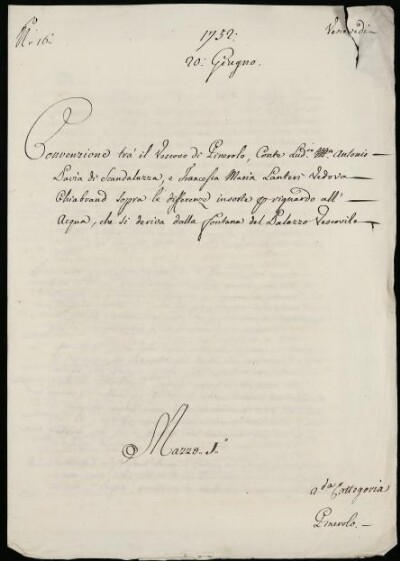 N.º 16.
1752.
Vescovadi
20. Giugno.
Convenzione trà il Vescovo di Pinerolo, Conte Lud.co M.a Antonio
Pavia di Scandaluzza, e Francesca Maria Lanteri Vedova
Chiabrand sopra le differenze insorte p riguardo all'
Acqua, che si deriva dalla fontana del Palazzo Vescovile
Mazzo 1.º
2.da Cattegoria
Pinerolo.